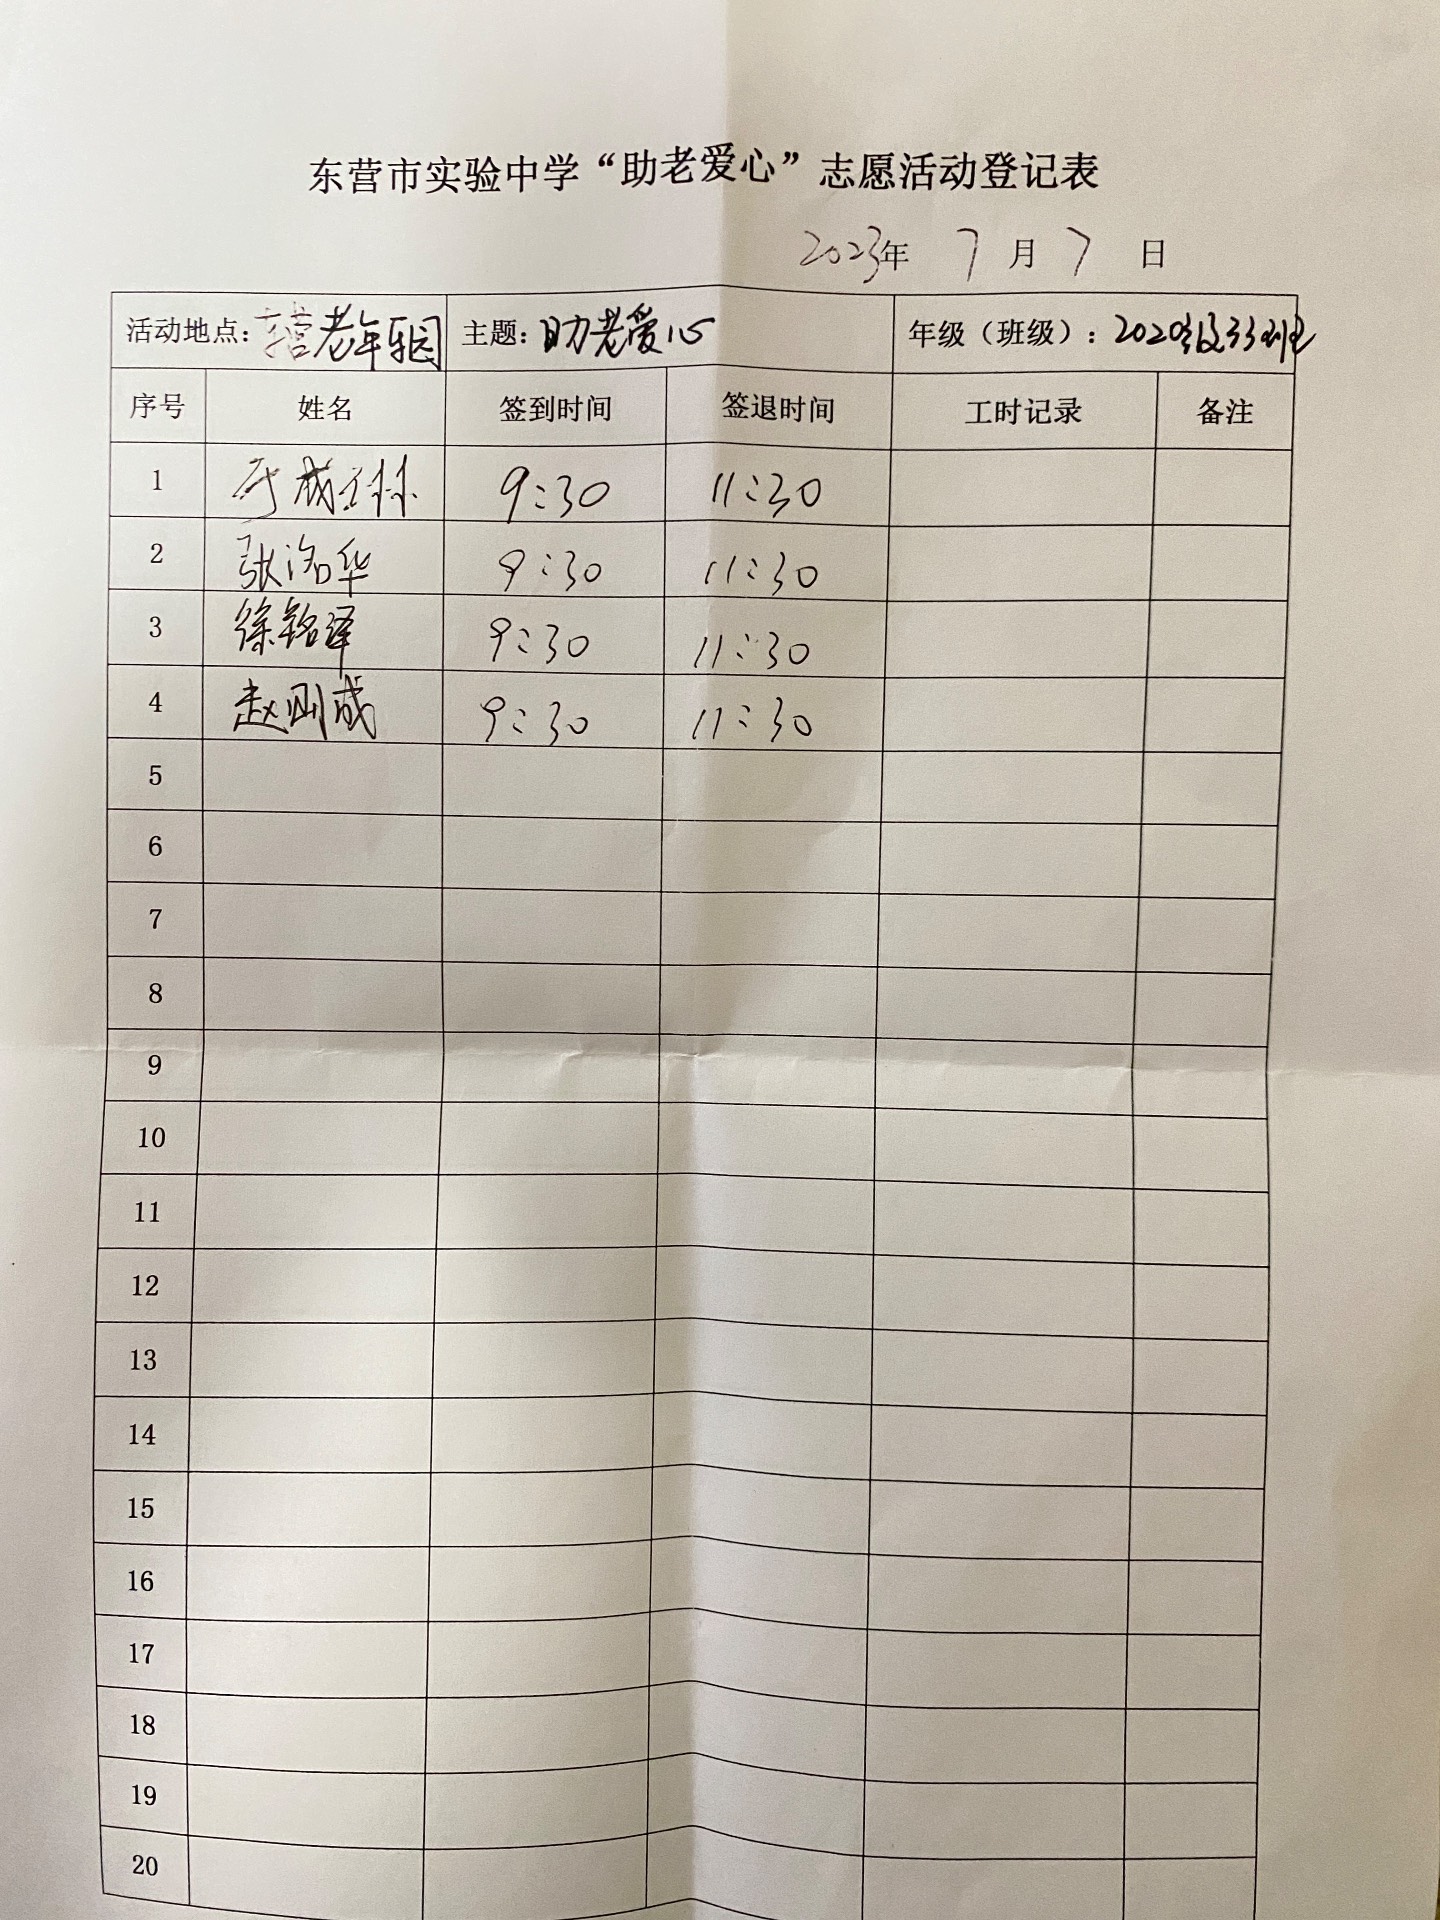 东营市实验中学“助老爱心”志愿活动登记表
2023年 7 月 7 日
活动地点：东营老年乐园 主题：助老爱心 年级（班级）：2020级33班
序号 姓名 签到时间 签退时间 工时记录 备注
1 成 9:30 11:30
2 张洺华 9:30 11:30
3 徐铭泽 9:30 11:30
4 赵刚成 9:30 11:30
5
6
7
8
9
10
11
12
13
14
15
16
17
18
19
20